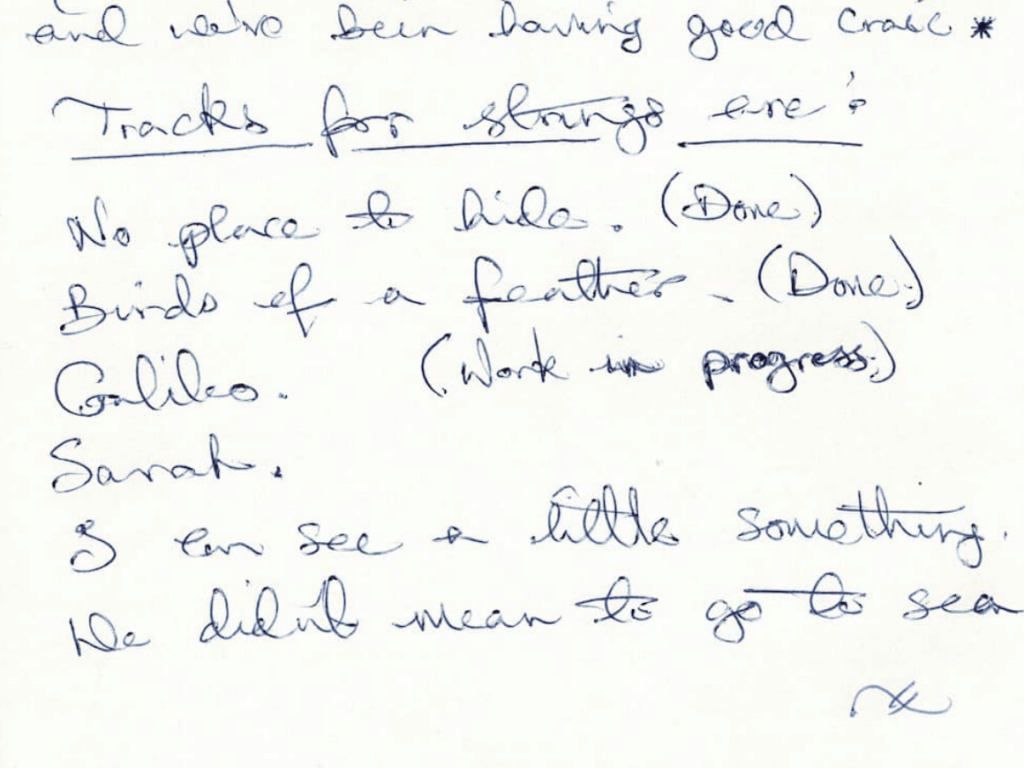 and we've been having good craic *
Tracks for strings are:
No place to hide. (Done)
Birds of a feather. (Done.)
Galileo. (Work in progress.)
Sarah.
I can see a little something.
We didn't mean to go to sea